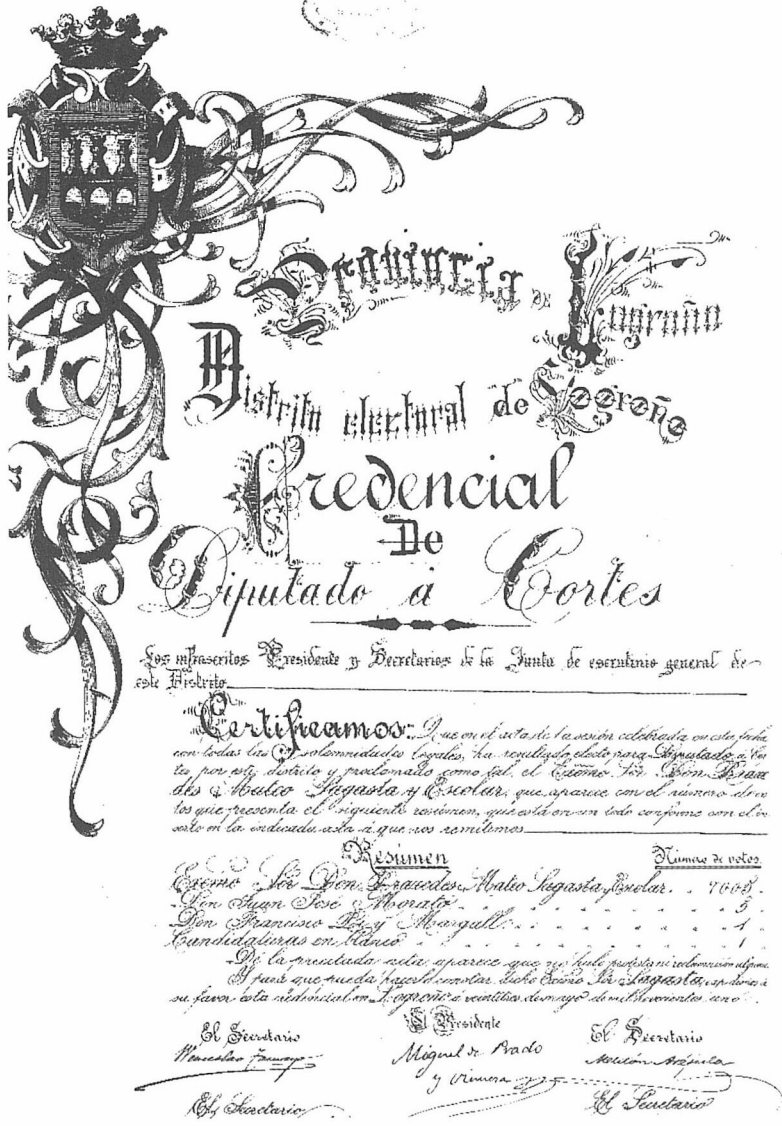 Provincia de Logroño
Distrito electoral de Logroño
Credencial
De
Diputado á Cortes
Los infrascritos Presidente y Secretarios de la Junta de escrutinio general de
este Distrito
Certificamos: Que en el acta de la sesión celebrada en esta fecha
con todas las solemnidades legales, ha resultado electo para Diputado á Cor
tes por este distrito y proclamado como tal, el Excmo Sor Don Práxe
des Mateo Sagasta y Escolar, que aparece con el número de vo
tos que presenta el siguiente resúmen, que está en un todo conforme con el in
serto en la indicada acta á que nos remitimos
Resúmen Número de votos.
Excmo Sor Don Práxedes Mateo Sagasta y Escolar. 
Don Juan José Morato 5
Don Francisco Pi y Margall 1
Candidaturas en blanco 1
De la precitada acta aparece que no hubo protesta ni reclamación alguna.
Y para que pueda hacerlo constar dicho Excmo Sor Sagasta, expedimos á
su favor esta credencial en Logroño á veintitres de mayo de mil novecientos uno.
El Presidente
El Secretario El Secretario
Miguel de Prado
y
El Secretario El Secretario